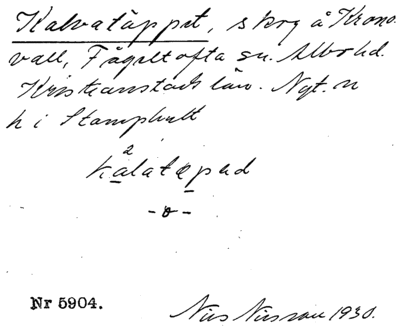 Kalvatäppet, skog å Krono-
vall, Fågeltofta sn. Albo hd.
Kristianstads län. Ngt. n
h i Stamphult
2
kalatepad
-o-
Nr 5904. Nils Nilsson 1930.